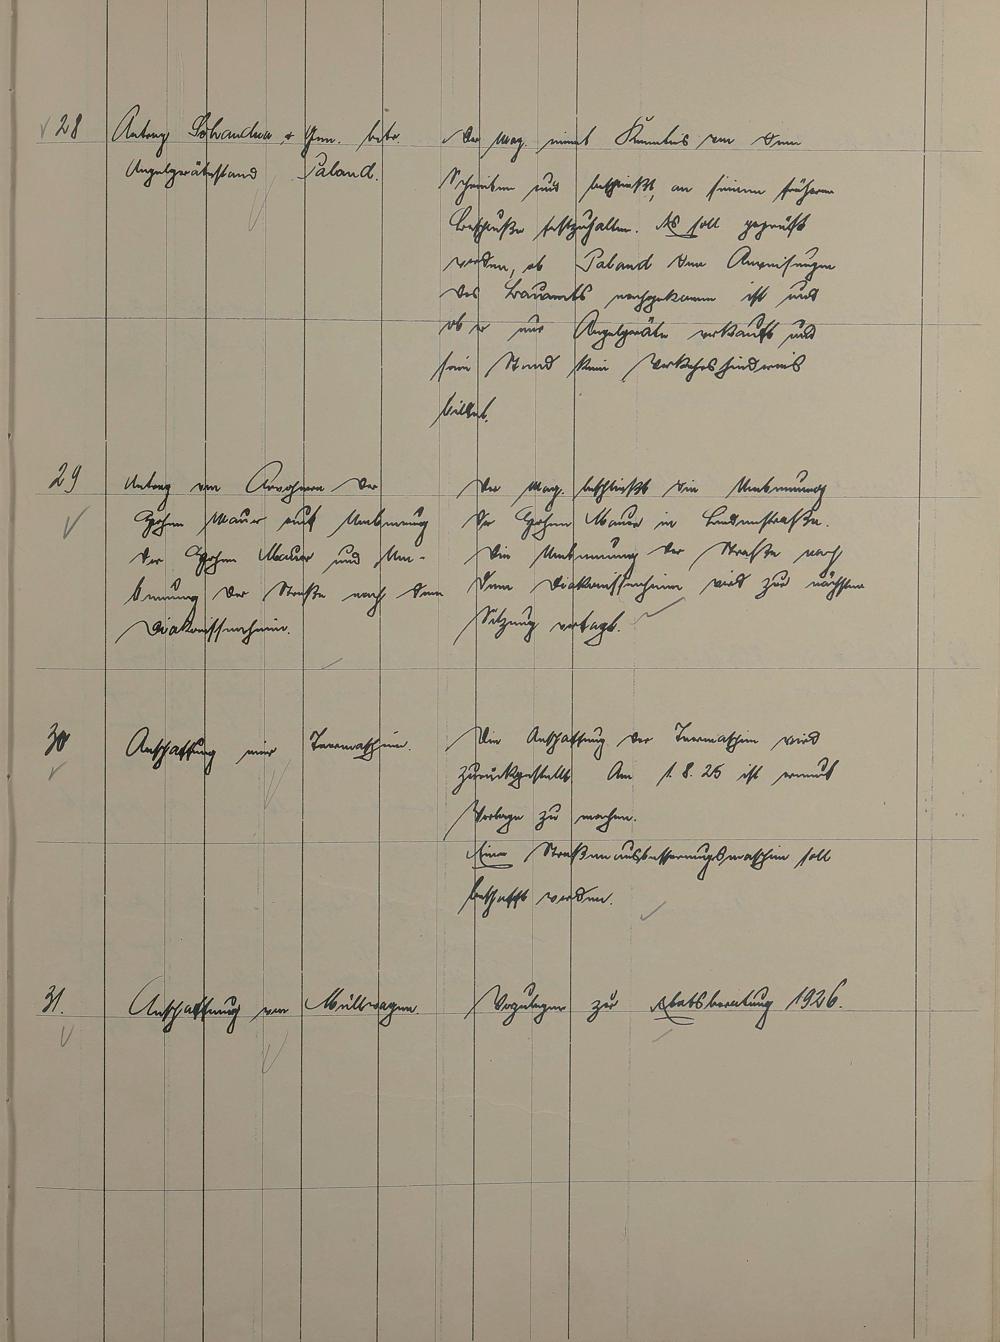 28
Antrag Schandua & Gen. betr.
Angelgerätestand Paland.
Der Mag. nimmt Kenntnis von dem
Schreiben und beschließt, an seinem früheren
Beschluße festzuhalten. Es soll geprüft
werden, ob Paland den Anweisungen
des Bauamts nachgekommen ist und
ob er nur Angelgeräte verkauft und
sein Stand kein Verkehrshindernis
bildet.
29
Antrag von Anwohnern der
Hohen Mauer auf Umbennung
der Hohen Mauer und Um-
bennung der Straße nach dem
Diakonissenheim.
Der Mag. beschließt die Umbennung
der Hohen Mauer in Lindenstraße.
Die Umbennung der Straße nach
dem Diakonissenheim wird zur nächsten
Sitzung vertagt.
30
Anschaffung einer Teermaschine.
Die Anschaffung der Teermaschine wird
zurückgestellt. Am 1. 8. 25 ist erneut
Vorlage zu machen.
Eine Straßenausbesserungsmaschine soll
beschafft werden.
31.
Anschaffung von Müllwagen.
Vorzulegen zur Etatsberatung 1926.